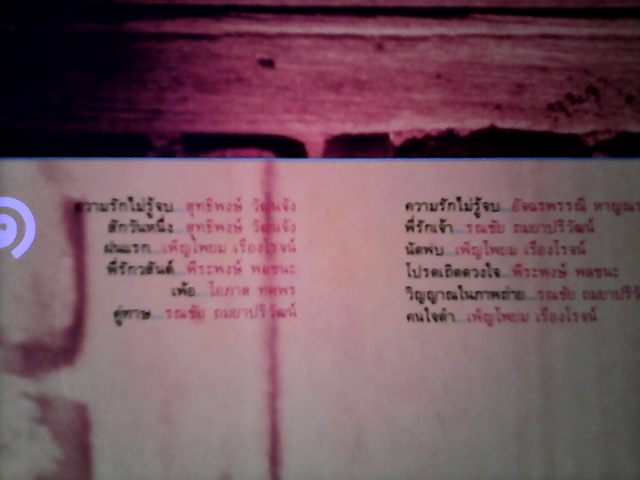 ความรักไม่รู้จบ...สุทธิพงษ์ วัฒนจัง
สักวันหนึ่ง...สุทธิพงษ์ วัฒนจัง
ฝนแรก...เพ็ญโพยม เรืองโรจน์
พี่รักวสันต์...พีระพงษ์ พลชนะ
เพ้อ...โอภาส ทศพร
คู่ทาษ...รณชัย ถมยาปริวัฒน์
ความรักไม่รู้จบ...อัจฉรพรรณี หาญณรงค์
พี่รักเจ้า...รณชัย ถมยาปริวัฒน์
นัดพบ...เพ็ญโพยม เรืองโรจน์
โปรดเถิดดวงใจ...พีระพงษ์ พลชนะ
วิญญาณในภาพถ่าย...รณชัย ถมยาปริวั
คนใจดำ...เพ็ญโพยม เรืองโรจน์